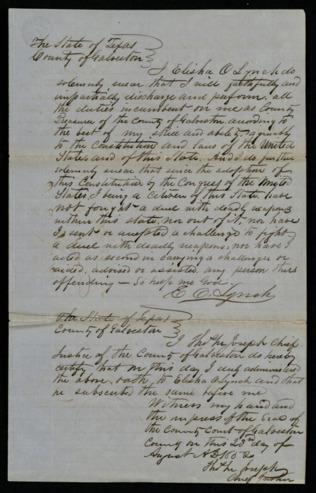 The State of Texas
County of Galveston
I Elisha O Lynch do
solemnly swear that I will faithfully and
impartially discharge and perform all
the duties incumbent on me as County
Treasurer of the County of Galveston according to
the best of my skill and ability, agreeably
to the Constitution and laws of the United
States and of this State. And I do further
solemnly swear that since the adoption of
this Constitution by the Congress of the United
States, I being a citizen of this State, have
not fought a duel with deadly weapons
within this state, nor out of it, nor have
I sent or accepted a challenge to fight
a duel with deadly weapons, nor have I
acted as second in carrying a challenge or
aided, advised or assisted any person thus
offending — So help me God
E. O. Lynch
The State of Texas
County of Galveston
I Tho. M. Joseph Chief
Justice of the County of Galveston do hereby
certify that on this day I duly administered
the above oath to Elisha O Lynch and that
he subscribed the same before me
Witness my hand and
the impress of the Seal of
the County Court of Galveston
County on this 23rd day of
August AD
Tho. M. Joseph
Chief Justice